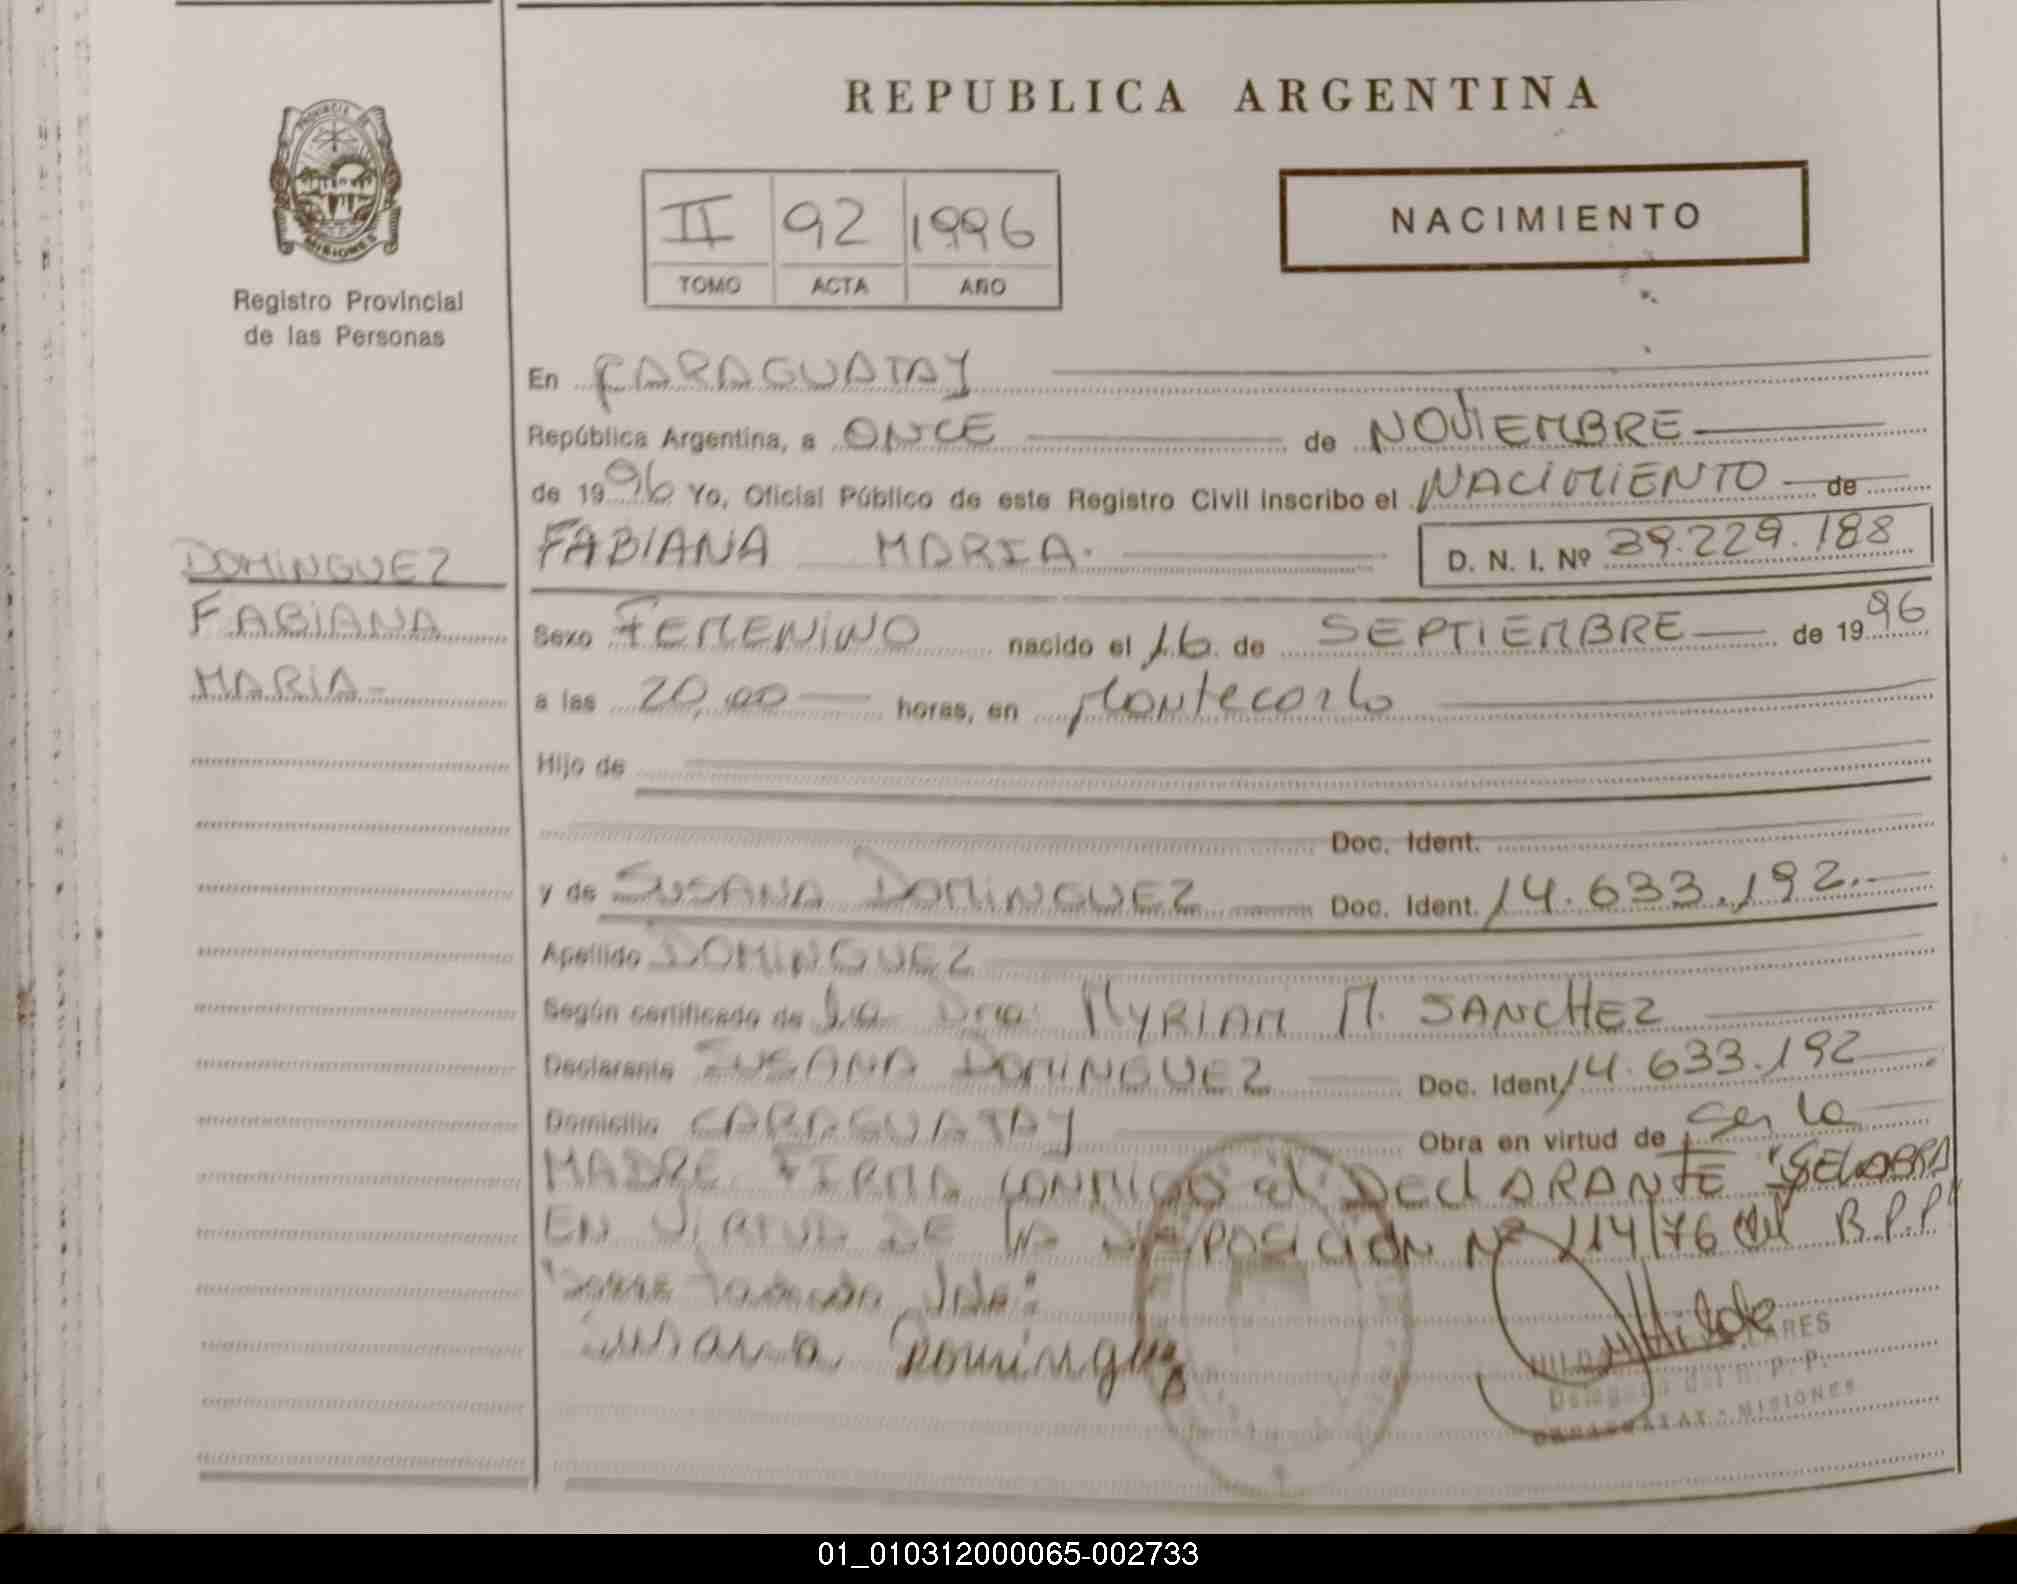 REPUBLICA ARGENTINA
PROVINCIA DE
MISIONES
Registro Provincial
de las Personas
II 92 1996
TOMO ACTA AÑO
NACIMIENTO
En CARAGUATAY
República Argentina, a ONCE de NOVIEMBRE
de 1996 Yo, Oficial Público de este Registro Civil inscribo el NACIMIENTO de
DOMINGUEZ
FABIANA
MARIA-
FABIANA MARIA. D. N. I. Nº 39.229.188
Sexo FEMENINO nacido el 16 de SEPTIEMBRE de 1996
a las 20,00 horas, en Montecarlo
Hijo de
Doc. Ident.
y de SUSANA DOMINGUEZ Doc. Ident. 14.633.192.-
Apellido DOMINGUEZ
Según certificado de la Dra. MYRIAM M. SANCHEZ
Declarante SUSANA DOMINGUEZ Doc. Ident. 14.633.192
Domicilio CARAGUATAY Obra en virtud de ser la
MADRE FIRMA CONMIGO el DEClARANTE "SE LABRA
EN VIRTUD DE LA DISPOSICION Nº 114/76 del R.P.P."
Susana Dominguez
Delegada del R. P. P.
CARAGUATAY - MISIONES
01_010312000065-002733